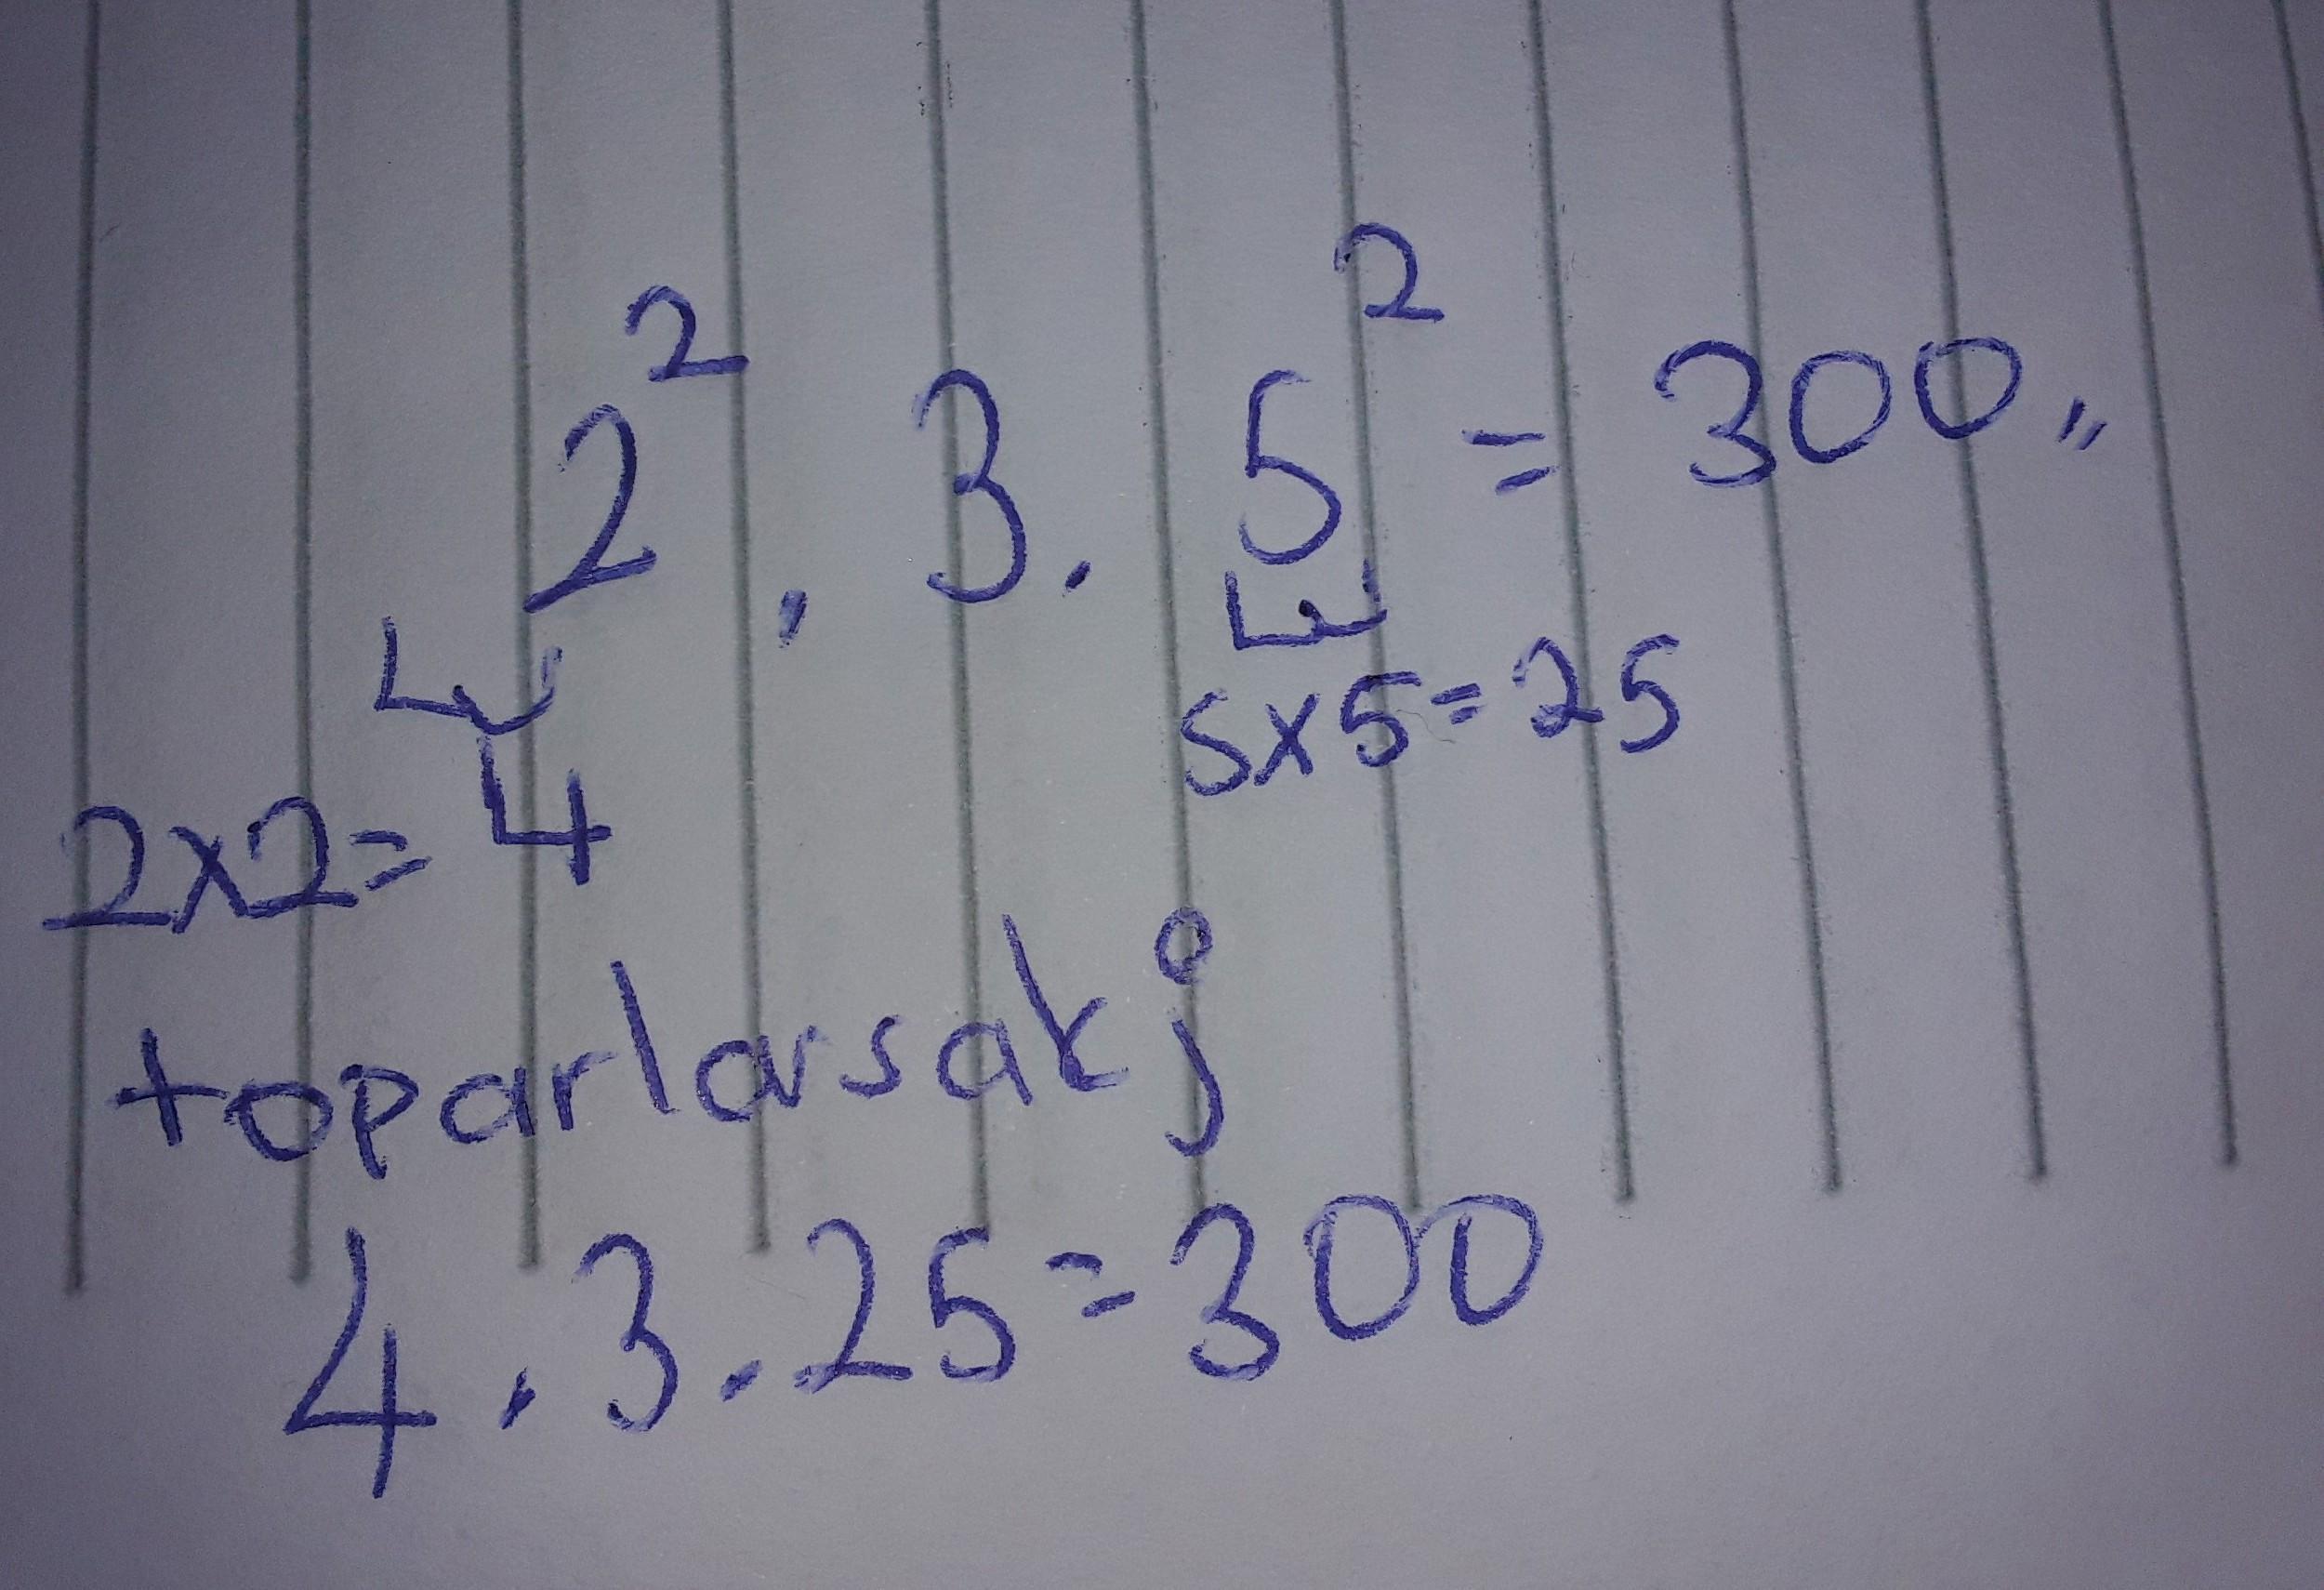 2² . 3 . 5² = 300 "
5x5=25
2x2= 4
toparlarsak;
4 . 3 . 25 = 300